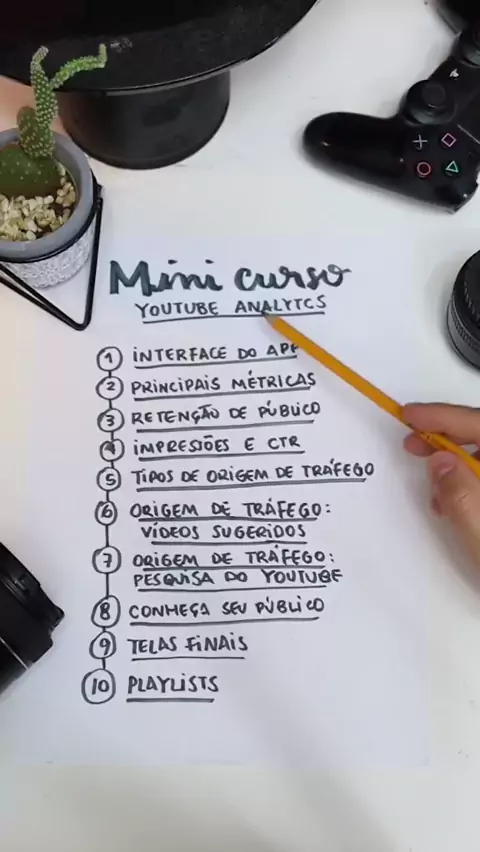 Mini curso
YOUTUBE ANALYTCS
1 INTERFACE DO APP
2 PRINCIPAIS MÉTRICAS
3 RETENÇÃO DE PÚBLICO
4 IMPRESSÕES E CTR
5 TIPOS DE ORIGEM DE TRÁFEGO
6 ORIGEM DE TRÁFEGO:
VÍDEOS SUGERIDOS
7 ORIGEM DE TRÁFEGO:
PESQUISA DO YOUTUBE
8 CONHEÇA SEU PÚBLICO
9 TELAS FINAIS
10 PLAYLISTS